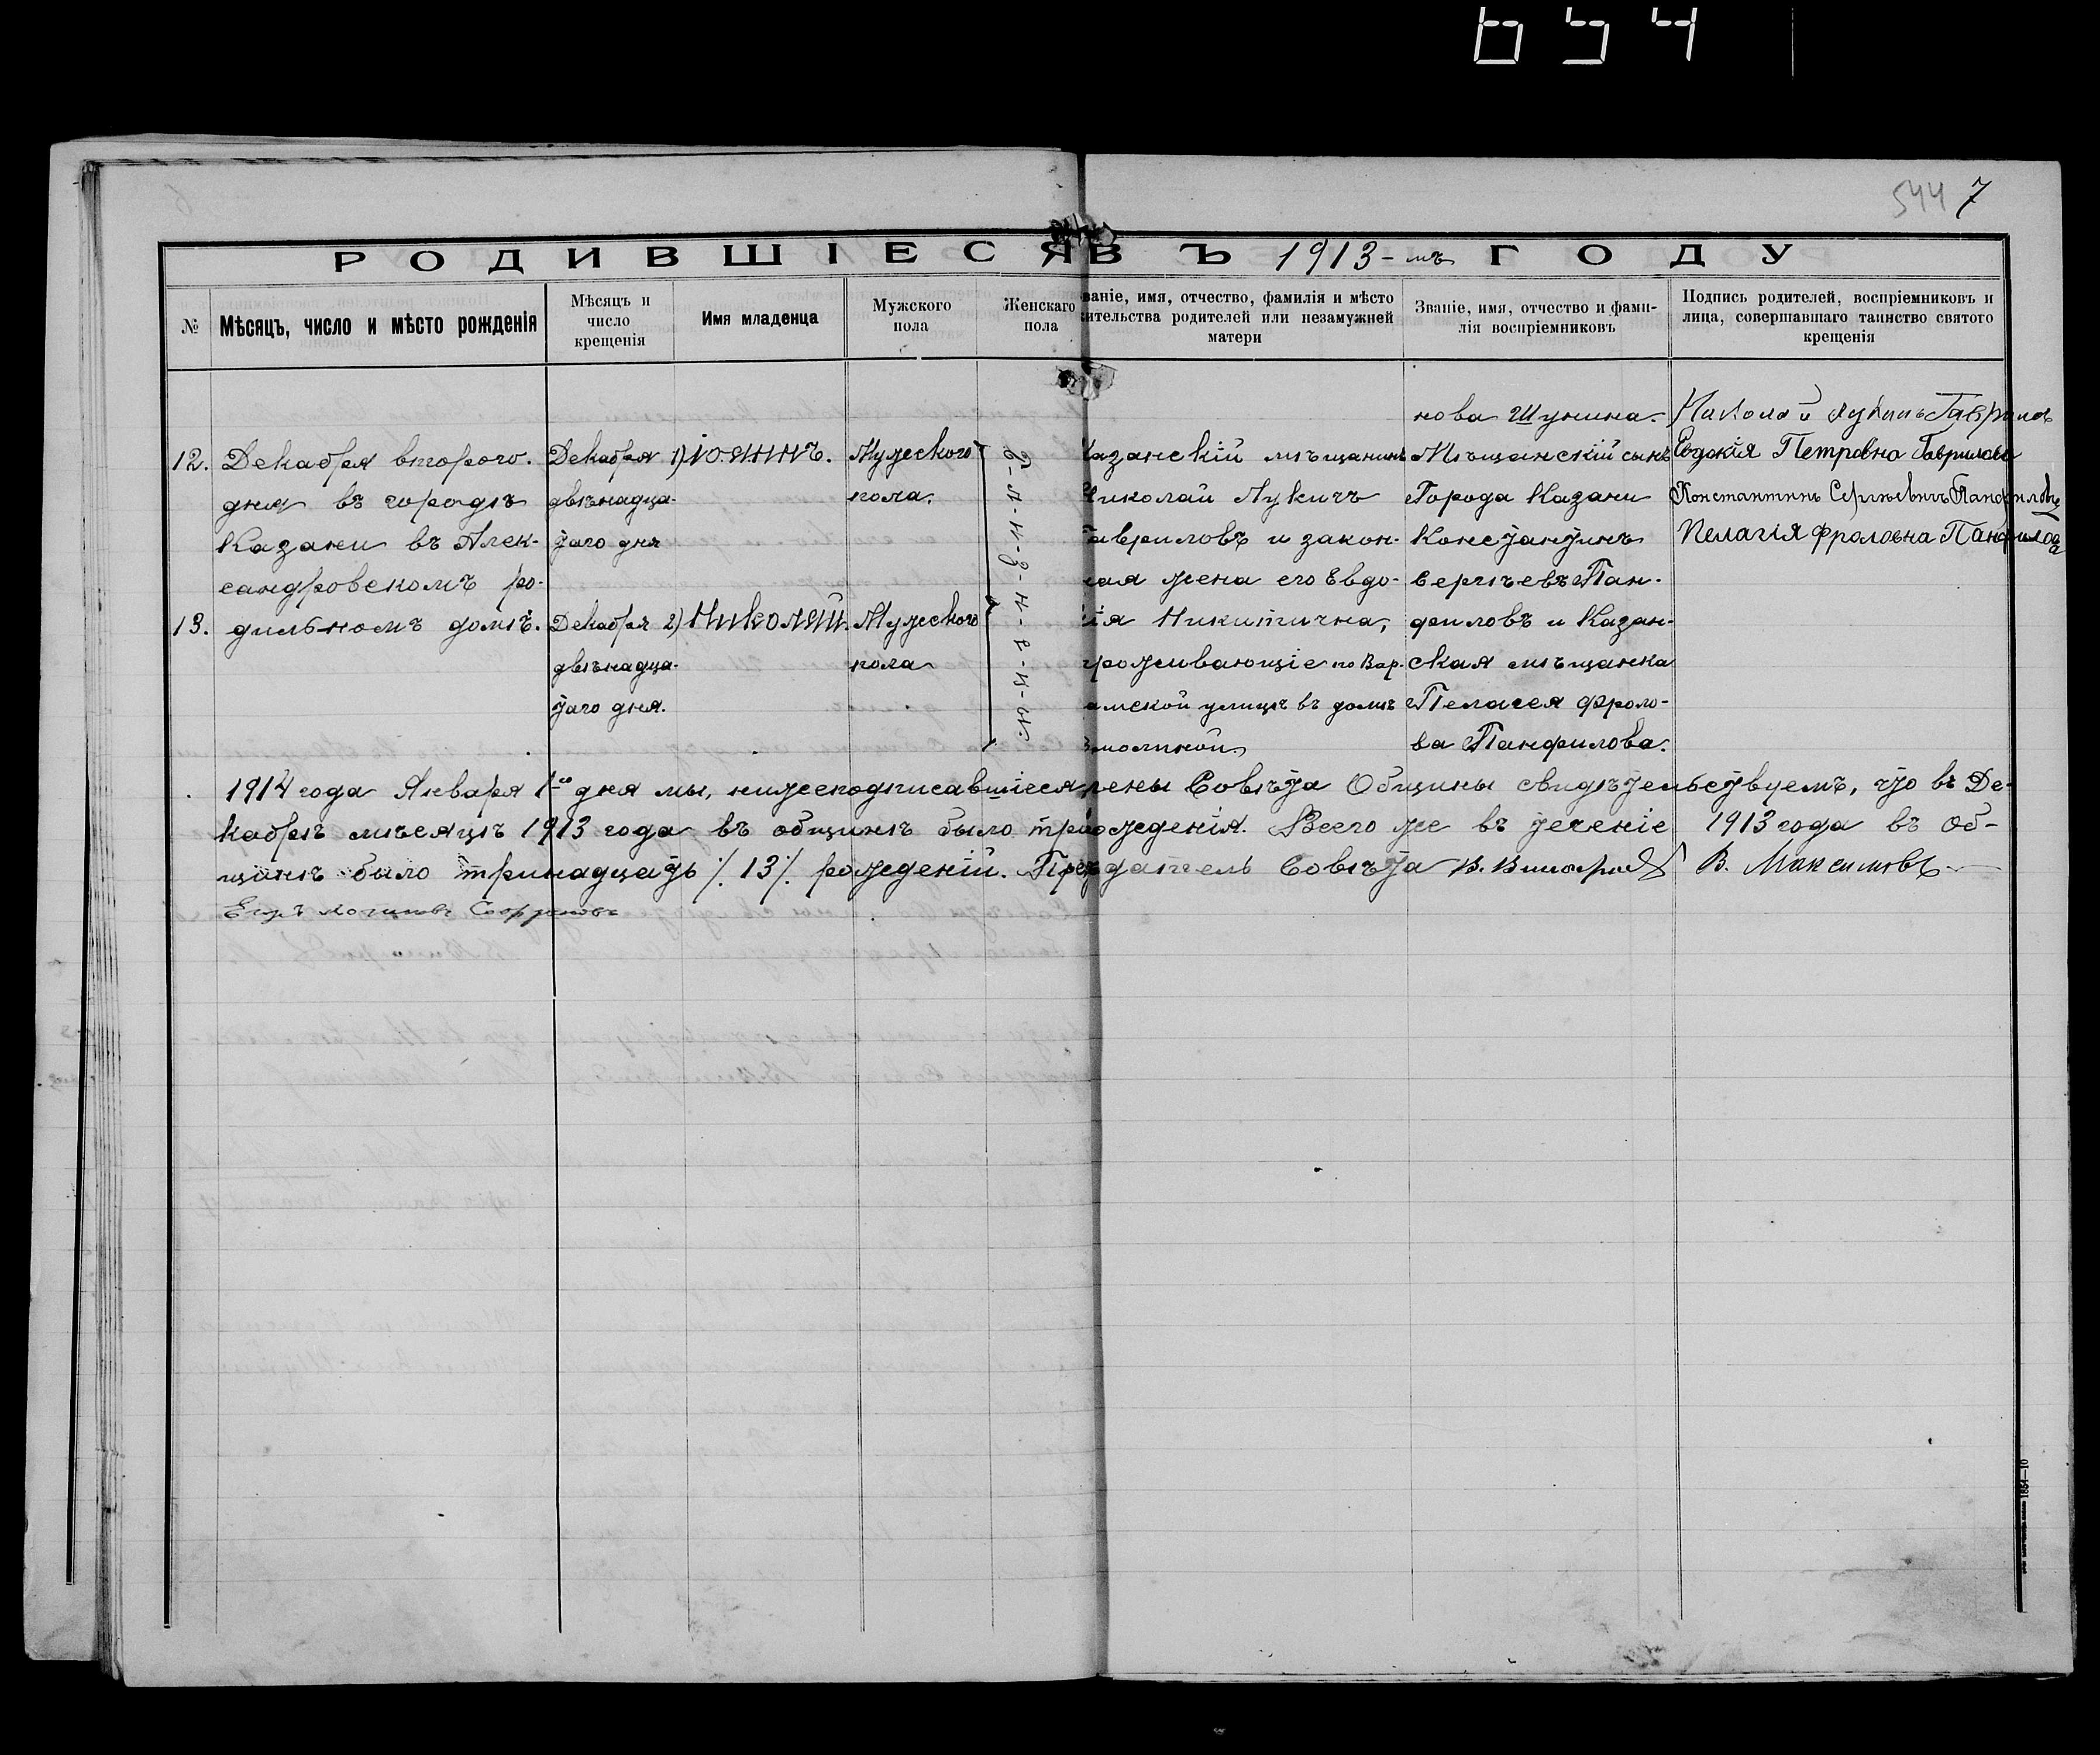 654
544 7
РОДИВШІЕСЯ ВЪ 1913-мъ ГОДУ
№
Мѣсяцъ, число и мѣсто рожденія
Мѣсяцъ и
число
крещенія
Имя младенца
Мужского
пола
Женскаго
пола
званіе, имя, отчество, фамилія и мѣсто
жительства родителей или незамужней
матери
Званіе, имя, отчество и фами-
лія воспріемниковъ
Подпись родителей, воспріемниковъ и
лица, совершавшаго таинство святого
крещенія
12. Декабря второго.
дня въ городѣ
Казани въ Алек-
сандровскомъ ро-
13. дильномъ домѣ.
Декабря
двѣнадца-
таго дня
Декабря
двѣнадца-
таго дня.
1) Іоаннъ.
2) Николай.
Мужского
пола.
Мужского
пола
б-л-и-з-н-е-ц-ы.
Казанскій мѣщанинъ
Николай Лукичъ
Гавриловъ и закон-
ная жена его Евдо-
кія Никитична,
проживающіе по Вар-
ламской улицѣ въ домѣ
Смолиной
нова Шунина.
Мѣщанскій сынъ
Города Казани
Константинъ
Сергѣевъ Пан-
филовъ и Казан-
ская мѣщанка
Пелагея Фроло-
ва Панфилова.
Николай Лукинъ Гавриловъ
Евдокія Петровна Гаврилова
Константинъ Сергѣевичъ Панфиловъ
Пелагія Фроловна Панфилова
1914 года Января 1го дня мы, нижеподписавшіеся члены Совѣта Общины свидѣтельствуемъ, что въ Де-
кабрѣ мѣсяцѣ 1913 года въ общинѣ было три рожденія. Всего же въ теченіе 1913 года въ об-
щинѣ было тринадцать /.13/. рожденій. Предсѣдатель Совѣта В. Виноградов В. Максимовъ
Егоръ Логиновъ Софроновъ
1884—10